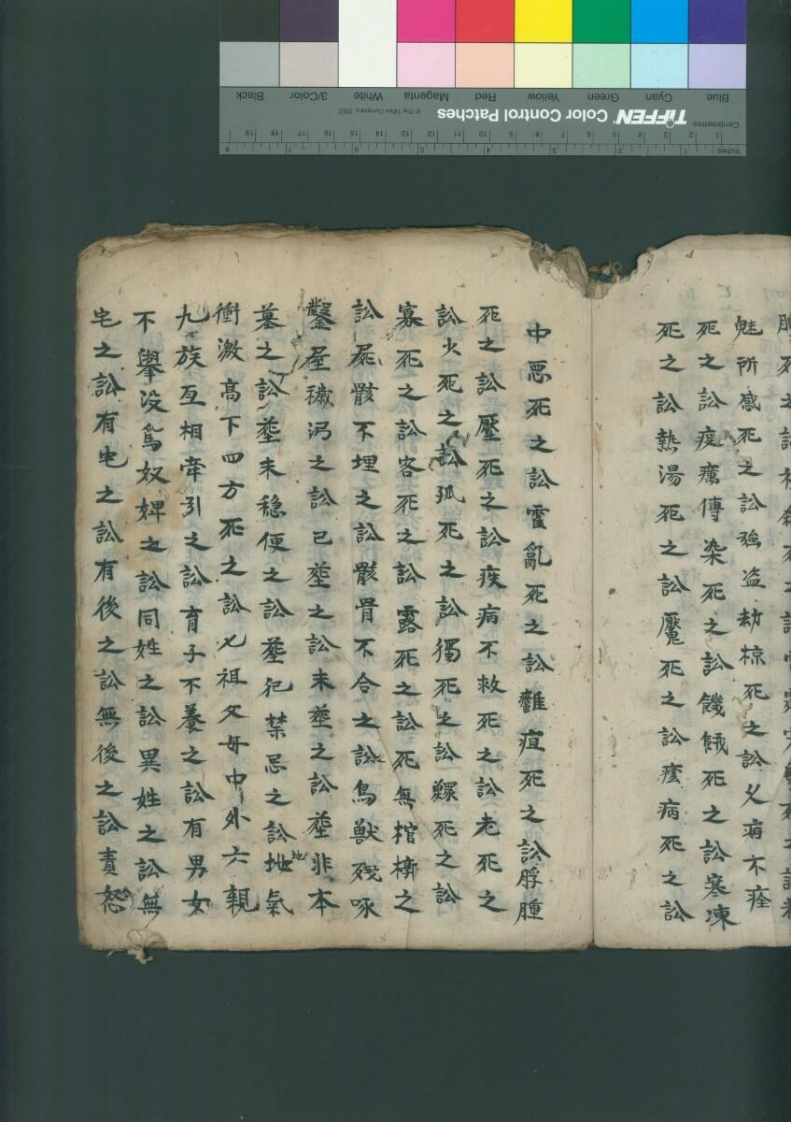 Blue Cyan Green Yellow Red Magenta White 3/Color Black
Centimetres TIFFEN Color Control Patches © The Tiffen Company, 2007
1 2 3 4 5 6 7 8 9 10 11 12 13 14 15 16 17 18 19
Inches 1 2 3 4 5 6 7 8
魅所惑死之訟強盗劫掠死之訟久病不痊
死之訟疫癘傳染死之訟饑餓死之訟寒凍
死之訟熱湯死之訟魘死之訟病死之訟
中惡死之訟霍亂死之訟癰疽死之訟脬腫
死之訟壓死之訟疾病不救死之訟老死之
訟火死之訟孤死之訟獨死之訟鰥死之訟
寡死之訟客死之訟露死之訟死無棺槨之
訟屍骸不埋之訟骸骨不合之訟鳥獸殘啄
鑿屋穢汚之訟已塟之訟未塟之訟塟非本
墓之訟塟未穩便之訟塟犯禁忌之訟地氣
地
衝激高下四方死之訟七祖父母中外六親
九族互相牽引之訟育子不養之訟有男女
不舉沒為奴婢之訟同姓之訟異姓之訟無
宅之訟有宅之訟有後之訟無後之訟責怒